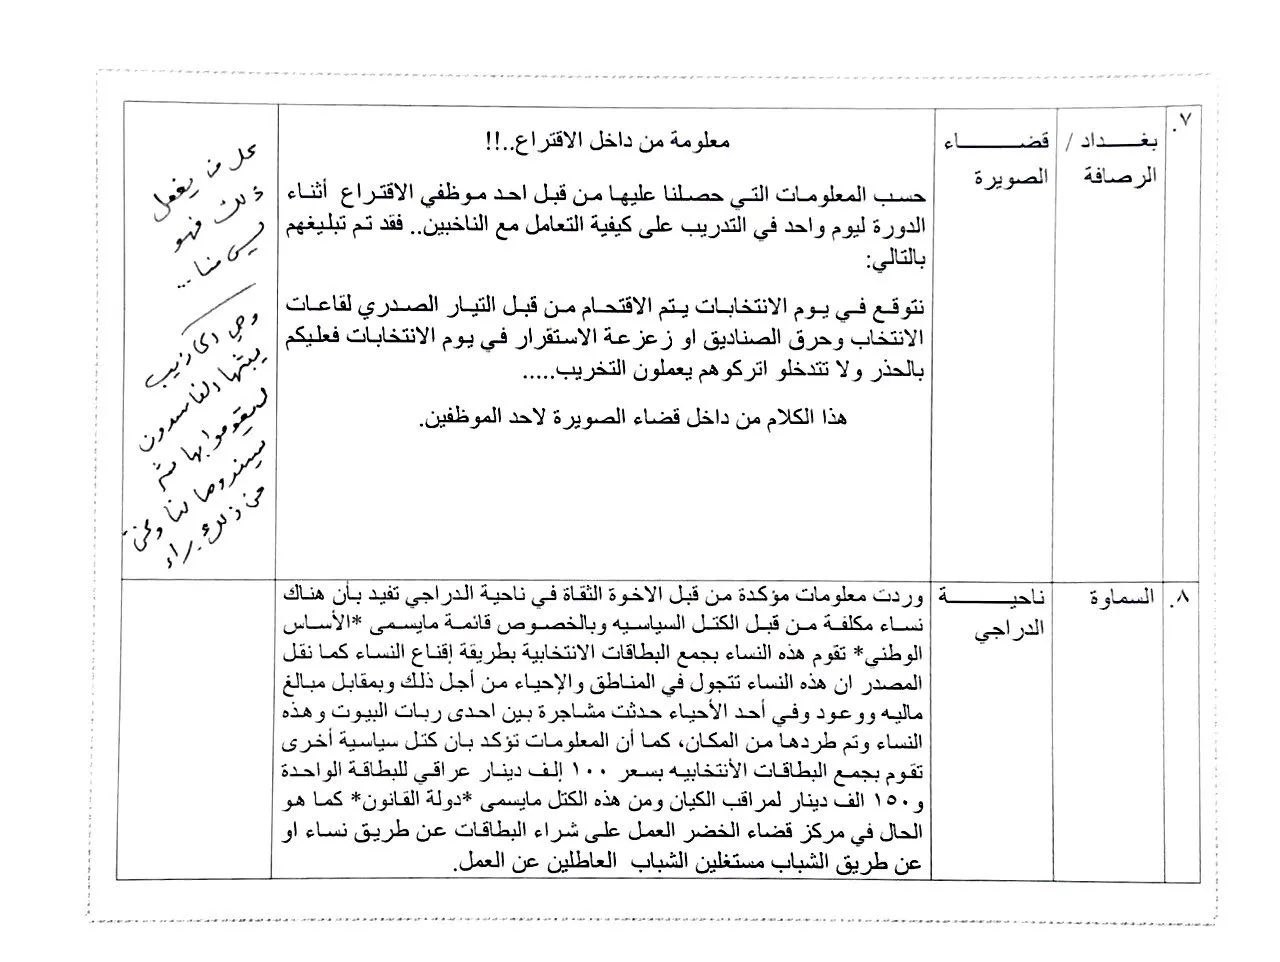 ٧.
بغداد /
الرصافة
قضاء
الصويرة
معلومة من داخل الاقتراع..!!
حسب المعلومات التي حصلنا عليها من قبل احد موظفي الاقتراع أثناء
الدورة ليوم واحد في التدريب على كيفية التعامل مع الناخبين.. فقد تم تبليغهم
بالتالي:
نتوقع في يوم الانتخابات يتم الاقتحام من قبل التيار الصدري لقاعات
الانتخاب وحرق الصناديق او زعزعة الاستقرار في يوم الانتخابات فعليكم
بالحذر ولا تتدخلو اتركوهم يعملون التخريب.....
هذا الكلام من داخل قضاء الصويرة لاحد الموظفين.
كل من يفعل
ذلك فهو
ليس منا...
وهي اكاذيب
يبثها الفاسدون
ليقوموا بها ثم
سيسندوها لنا ونحن
من ذلك براء
٨.
السماوة
ناحية
الدراجي
وردت معلومات مؤكدة من قبل الاخوة الثقاة في ناحية الدراجي تفيد بأن هناك
نساء مكلفة من قبل الكتل السياسيه وبالخصوص قائمة مايسمى *الأساس
الوطني* تقوم هذه النساء بجمع البطاقات الانتخابية بطريقة إقناع النساء كما نقل
المصدر ان هذه النساء تتجول في المناطق والإحياء من أجل ذلك وبمقابل مبالغ
ماليه ووعود وفي أحد الأحياء حدثت مشاجرة بين احدى ربات البيوت وهذه
النساء وتم طردها من المكان، كما أن المعلومات تؤكد بان كتل سياسية أخرى
تقوم بجمع البطاقات الأنتخابيه بسعر ١٠٠ إلف دينار عراقي للبطاقة الواحدة
و١٥٠ الف دينار لمراقب الكيان ومن هذه الكتل مايسمى *دولة القانون* كما هو
الحال في مركز قضاء الخضر العمل على شراء البطاقات عن طريق نساء او
عن طريق الشباب مستغلين الشباب العاطلين عن العمل.